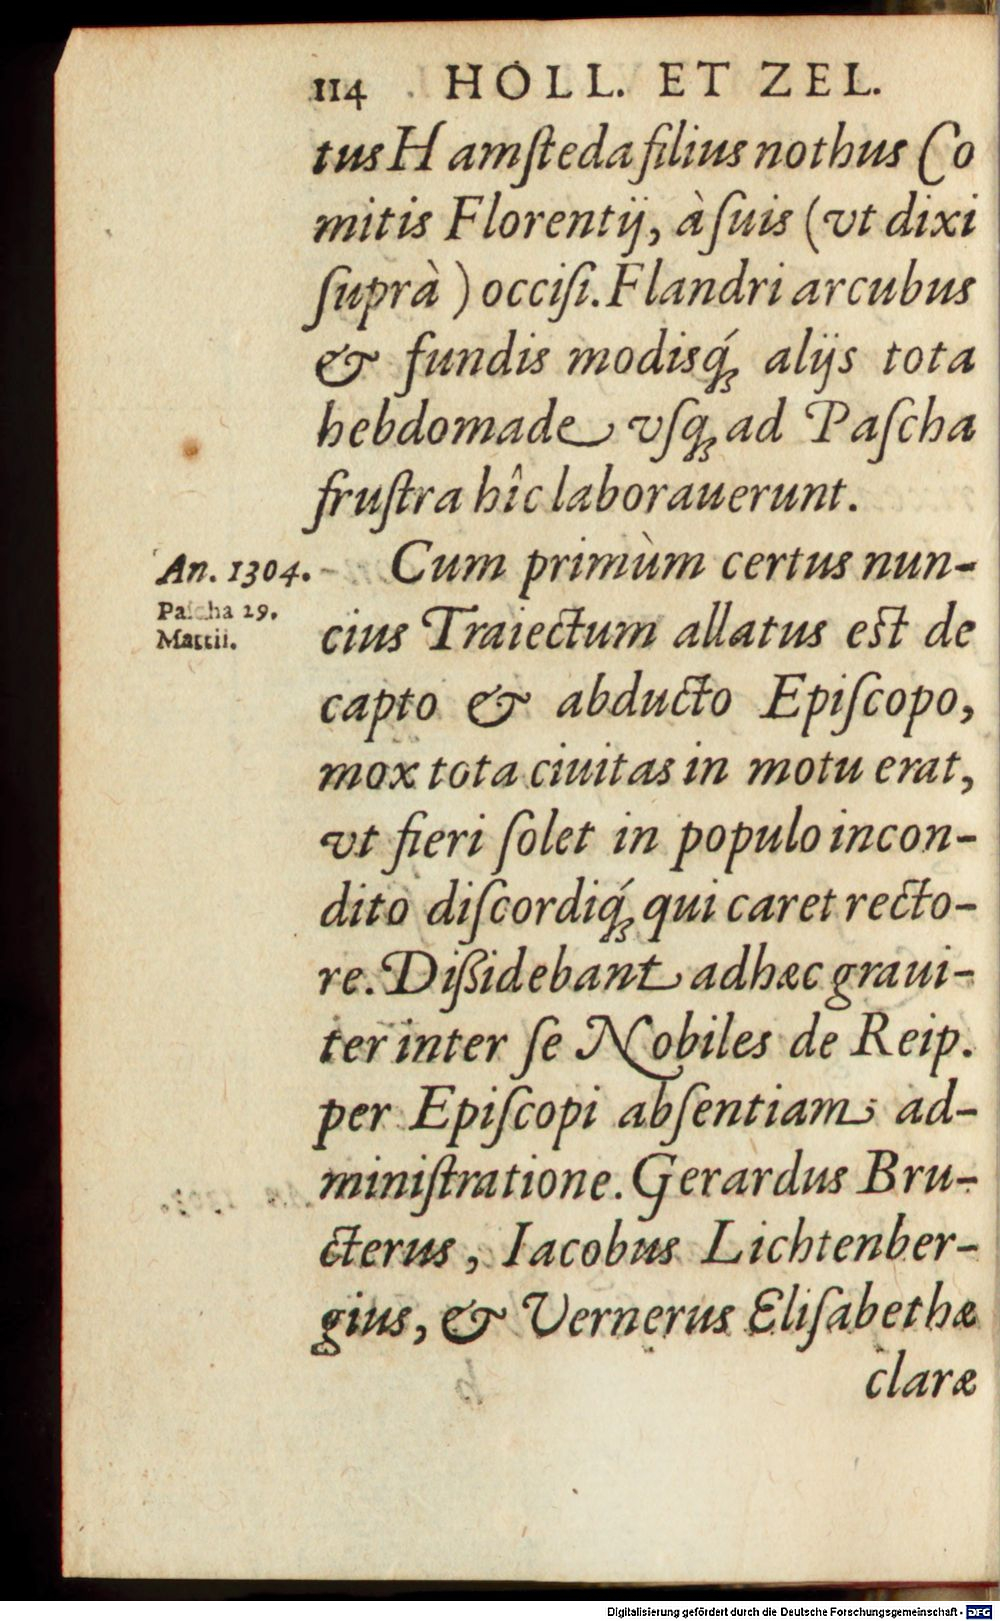 114 HOLL. ET ZEL.
tus Hamſteda filius nothus Co
mitis Florentij, à ſuis (vt dixi
ſuprà) occiſi. Flandri arcubus
& fundis modisq́ꝫ alijs tota
hebdomade vſqꝫ ad Paſcha
fruſtra hîc laborauerunt.
An. 1304.
Paſcha 29.
Martii.
Cum primùm certus nun-
cius Traiectum allatus eſt de
capto & abducto Epiſcopo,
mox tota ciuitas in motu erat,
vt fieri ſolet in populo incon-
dito diſcordiq́ꝫ qui caret recto-
re. Diſſidebant adhæc graui-
ter inter ſe Nobiles de Reip.
per Epiſcopi abſentiam ad-
miniſtratione. Gerardus Bru-
cterus, Iacobus Lichtenber-
gius, & Vernerus Eliſabethæ
claræ
Digitalisierung gefördert durch die Deutsche Forschungsgemeinschaft - DFG